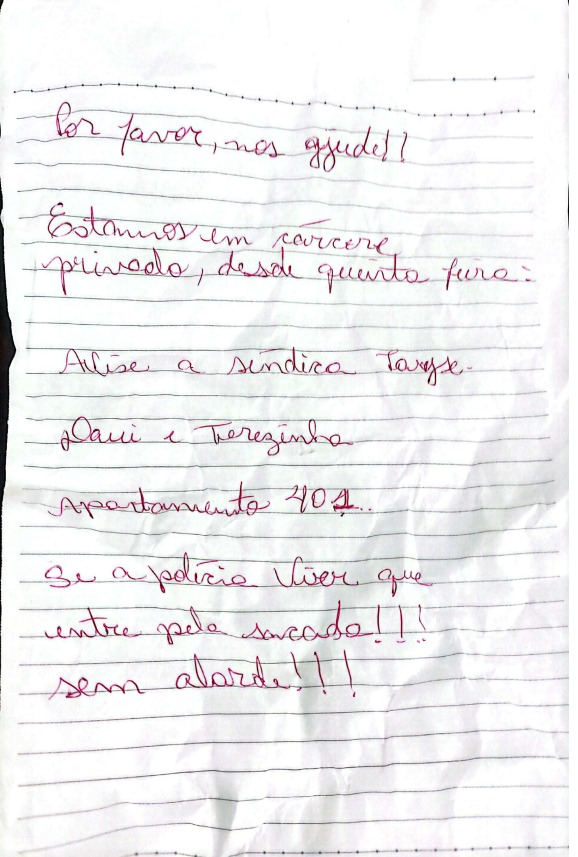 Por favor, nos ajude!!
Estamos em cárcere
privado, desde quinta feira:
Avise a síndica Tayse.
Davi e Terezinha
Apartamento 401..
Se a polícia vier que
entre pela sacada!!!
sem alarde!!!